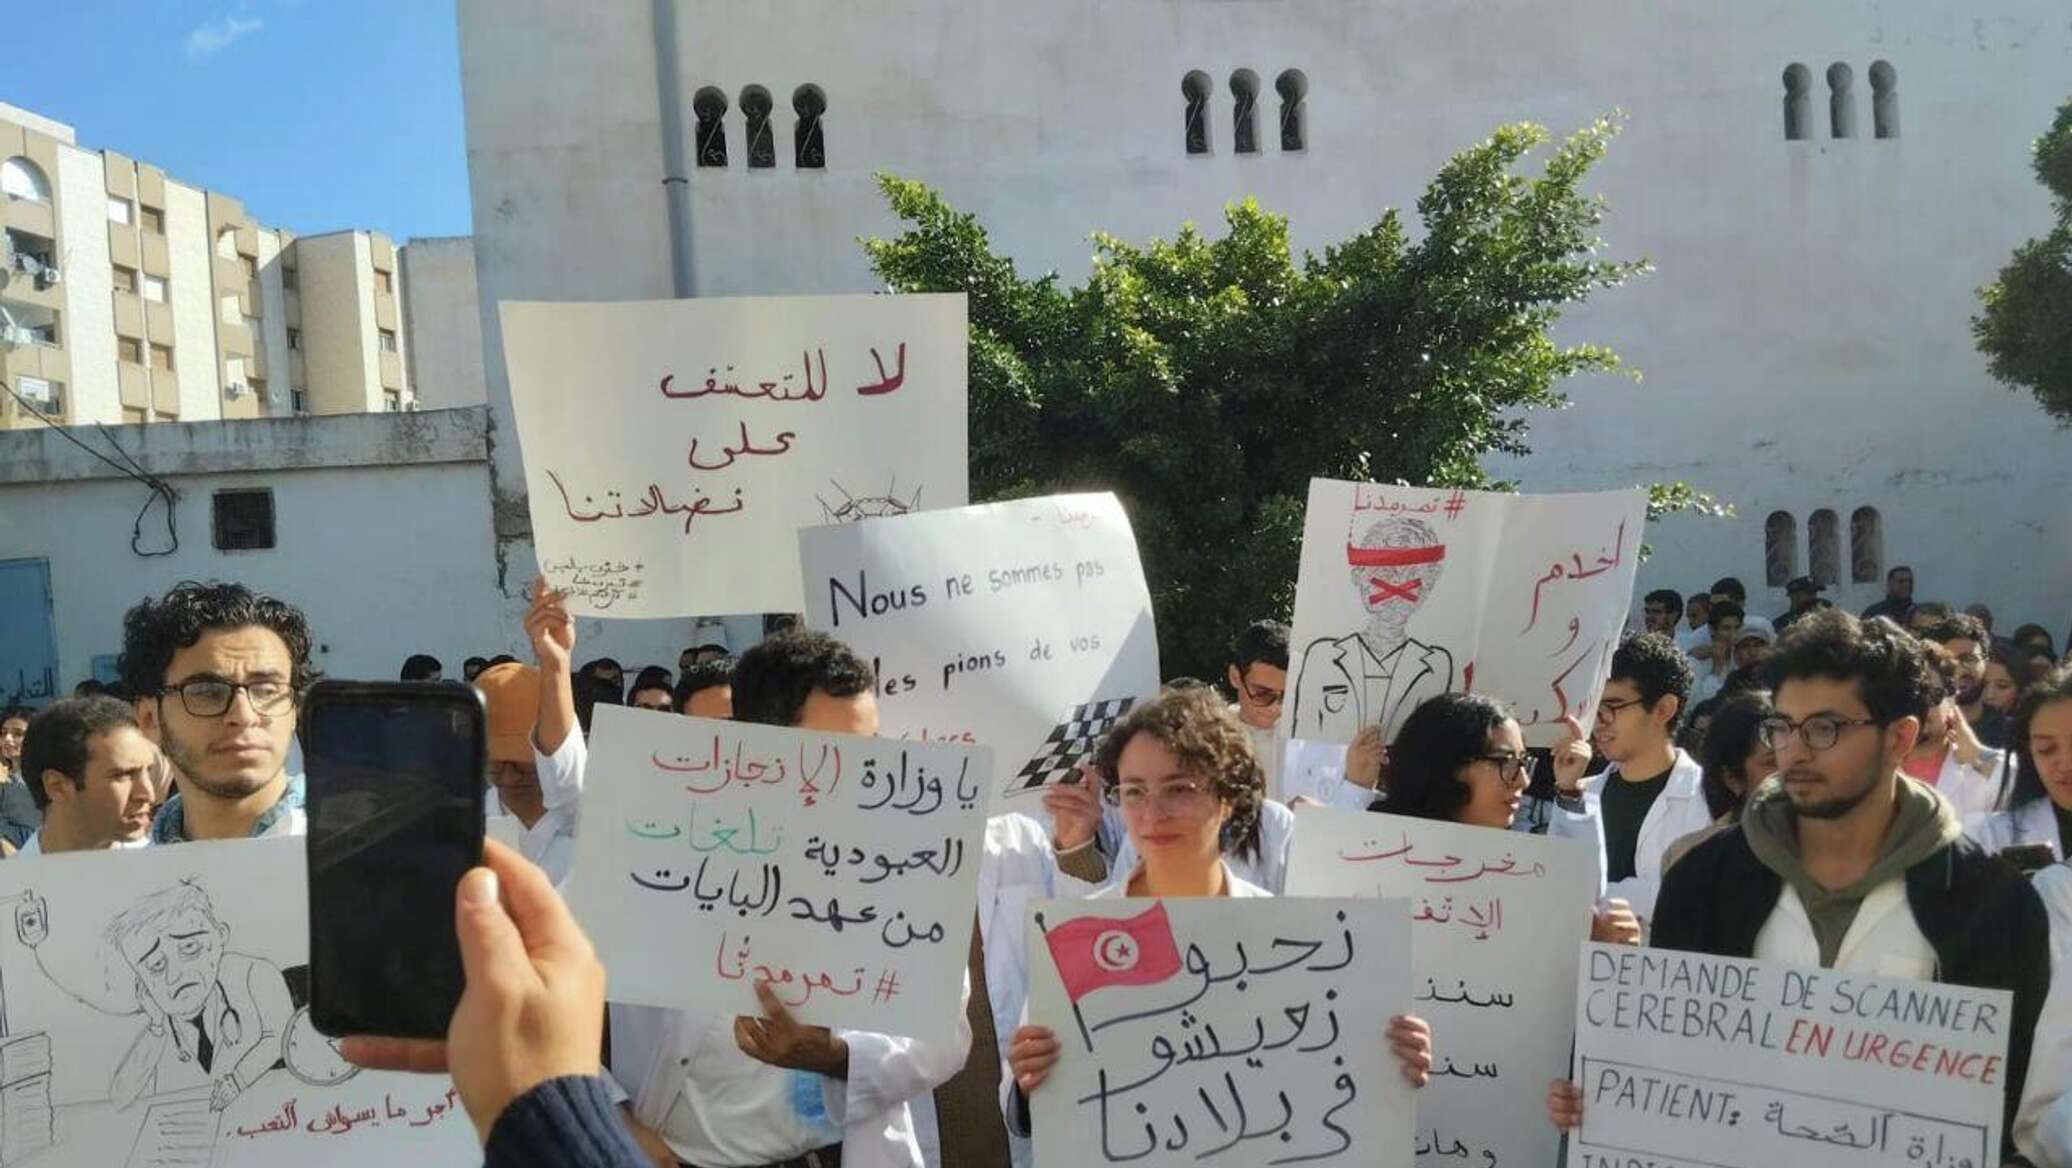 لا للتعسّف
على
نضالاتنا
Nous ne sommes pas
les pions de vos
#تمرمدنا
اخدم
و
يا وزارة الإنجازات
العبودية تلغات
من عهد البايات
#تمرمدنا
أجر ما يسواش التعب.
نحبو
نعيشو
في بلادنا
مخرجات
DEMANDE DE SCANNER
CEREBRAL EN URGENCE
PATIENT: وزارة الصّحة